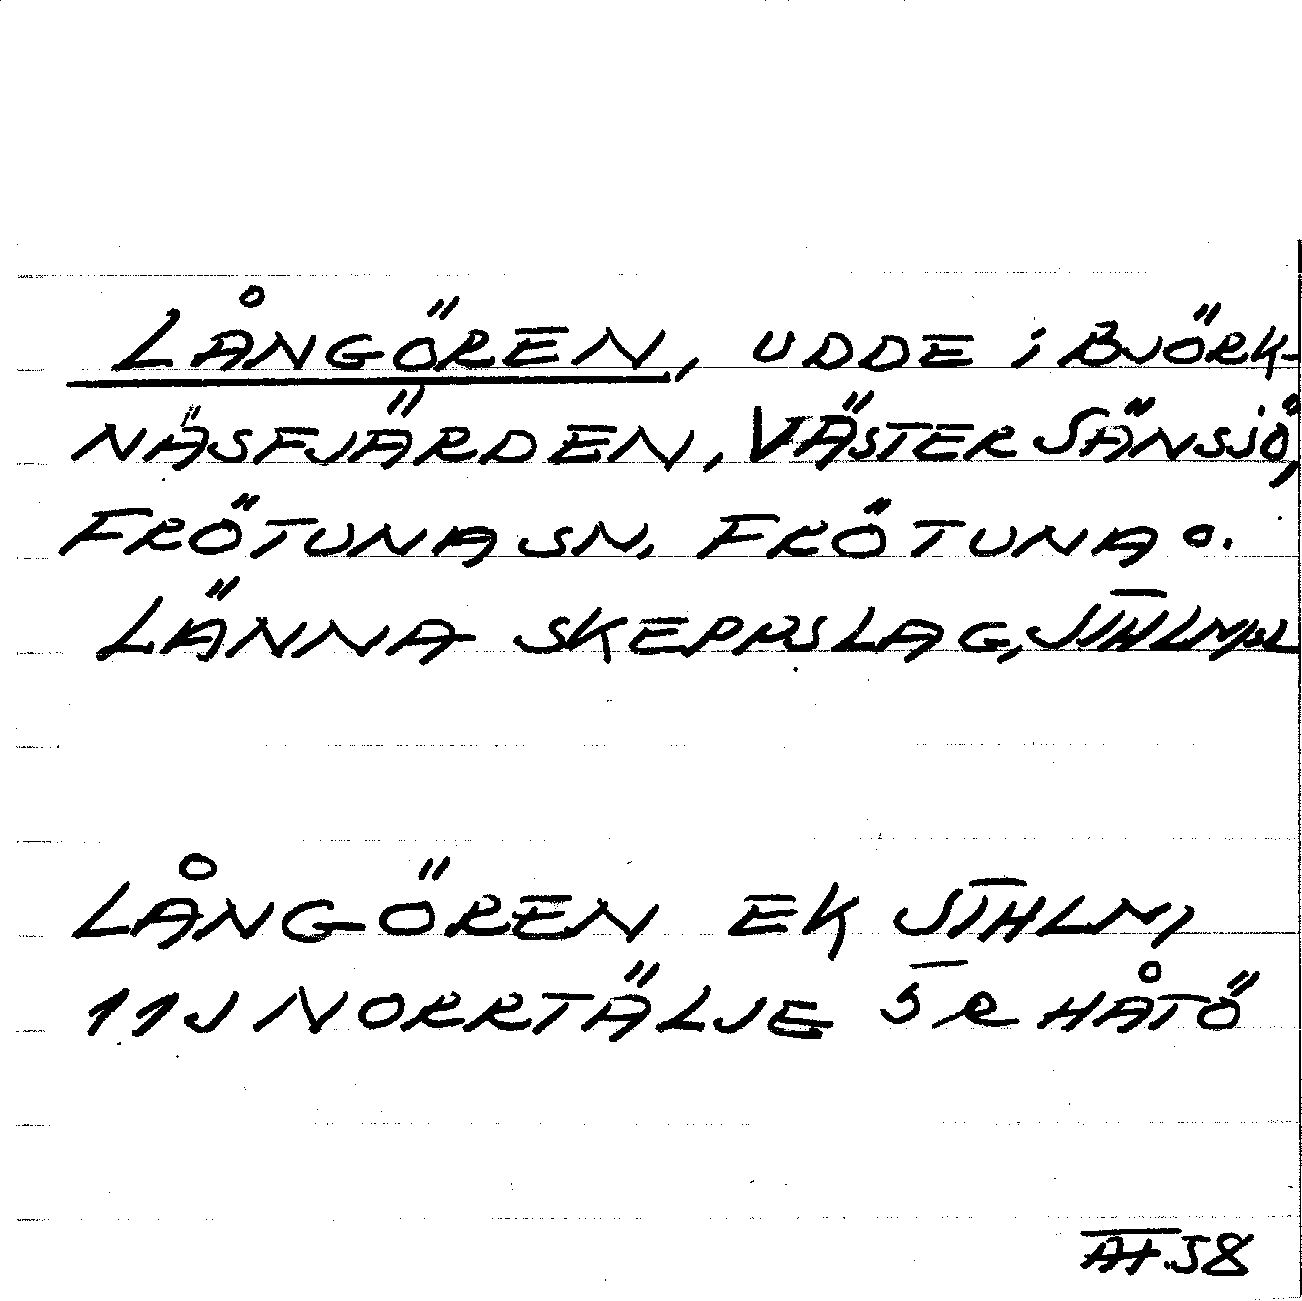 LÅNGÖREN, UDDE i BJÖRK-
NÄSFJÄRDEN, VÄSTER SÄNSJÖ,
FRÖTUNA SN, FRÖTUNA O.
LÄNNA SKEPPSLAG, STHLM
LÅNGÖREN EK STHLM,
11J NORRTÄLJE 5R HÅTÖ